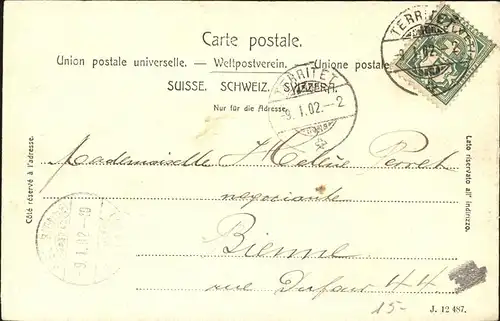 Carte postale.
Union postale universelle. — Weltpostverein. — Unione postale
SUISSE. SCHWEIZ. SVIZZERA.
Nur für die Adresse.
TERRITET
9. I. 02. – 2
TERRITET
02
2
Côté réservé à l'adresse.
Lato riservato all' indirizzo.
Mademoiselle Hélène Perret
negociante
Bienne
rue Dufour 44
15-
9. I. 02
J. 12 487.